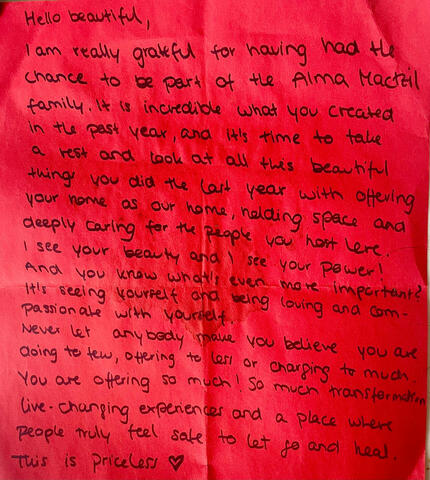 Hello beautiful,
I am really grateful for having had the
chance to be part of the Alma Mactzil
family. It is incredible what you created
in the past year, and it's time to take
a rest and look at all this beautiful
things you did the last year with offering
your home as our home, holding space and
deeply caring for the people you host here.
I see your beauty and I see your power!
And you know what's even more important?
It's seeing yourself and being loving and com-
passionate with yourself.
Never let anybody make you believe you are
doing to few, offering to less or charging to much.
You are offering so much! So much transformation
live-changing experiences and a place where
people truly feel safe to let go and heal.
This is priceless ♡